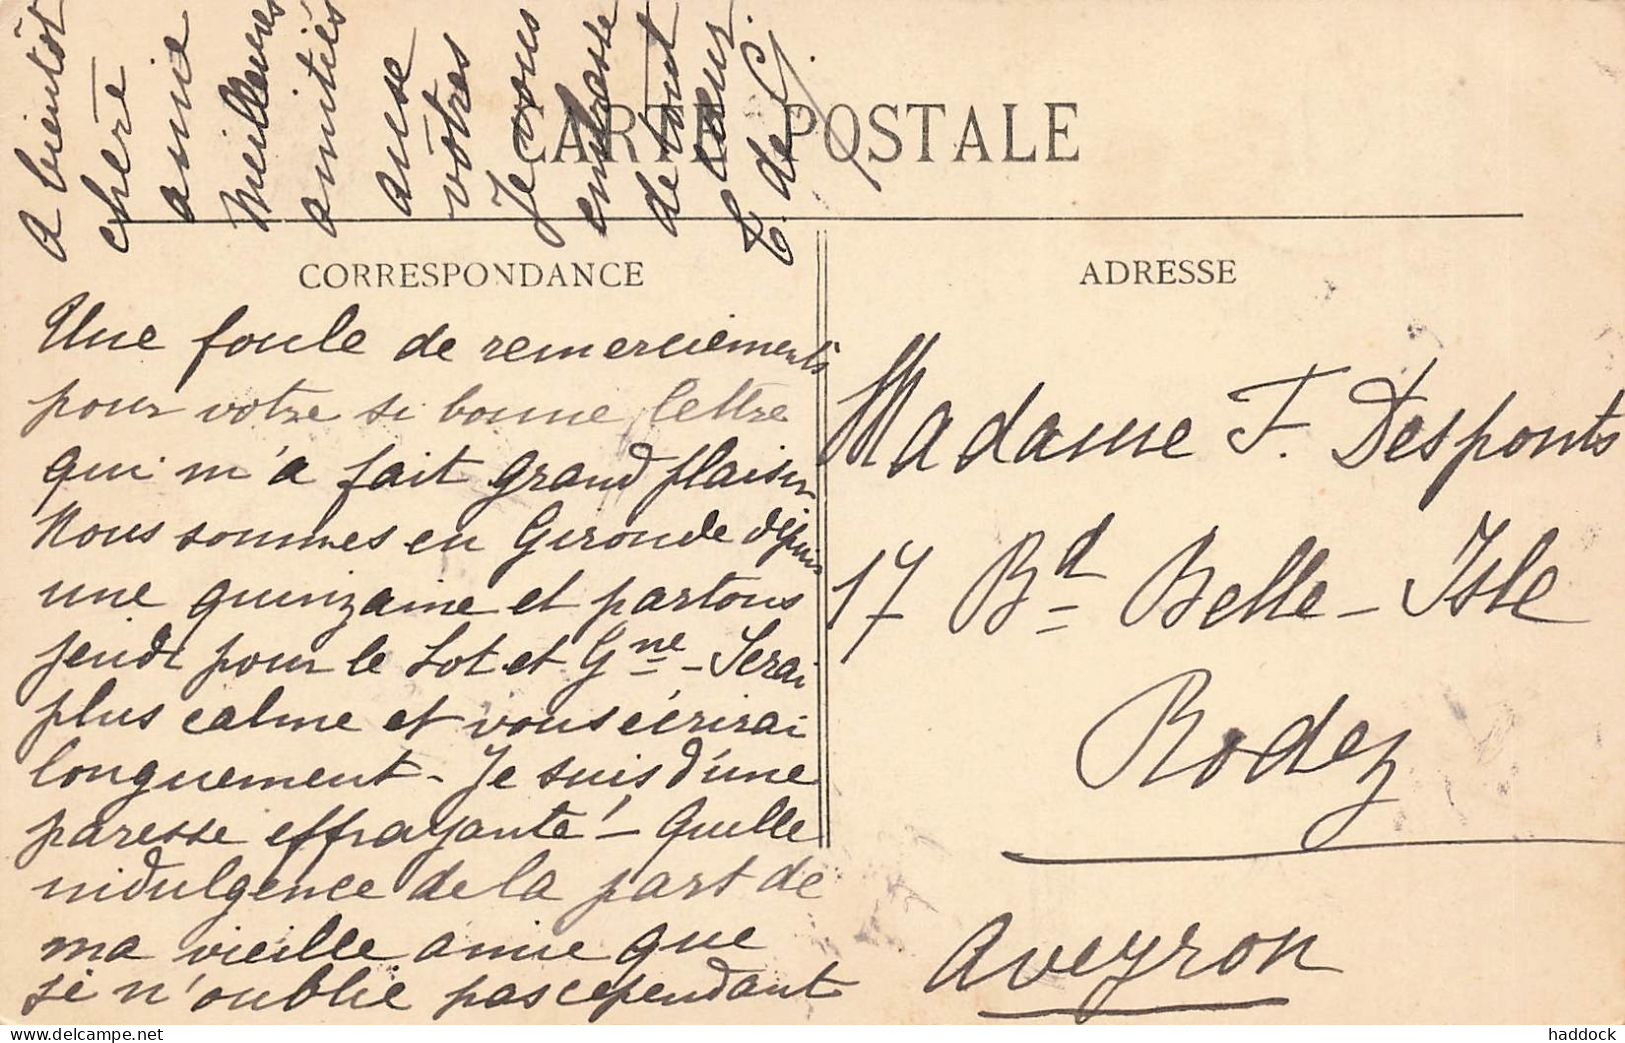 CARTE POSTALE
CORRESPONDANCE
Une foule de remerciements
pour votre si bonne lettre
qui m'a fait grand plaisir
Nous sommes en Gironde depuis
une quinzaine et partons
jeudi pour le Lot et Gne - Serai
plus calme et vous écrirai
longuement - Je suis d'une
paresse effrayante ! - Quelle
indulgence de la part de
ma vieille amie que
je n'oublie pas cependant
A bientôt
chère
amie
Meilleures
amitiés
aux
votres
Je vous
embrasse
de tout
cœur.
ADRESSE
Madame F. Desponts
17 Bd Belle-Isle
Rodez
Aveyron
www.delcampe.net
haddock